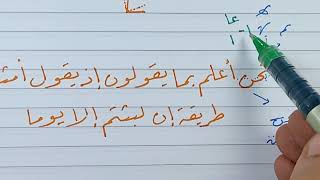 عا
نحن أعلم بما يقولون إذ يقول أمث
طريقة إن لبثتم إلا يوما